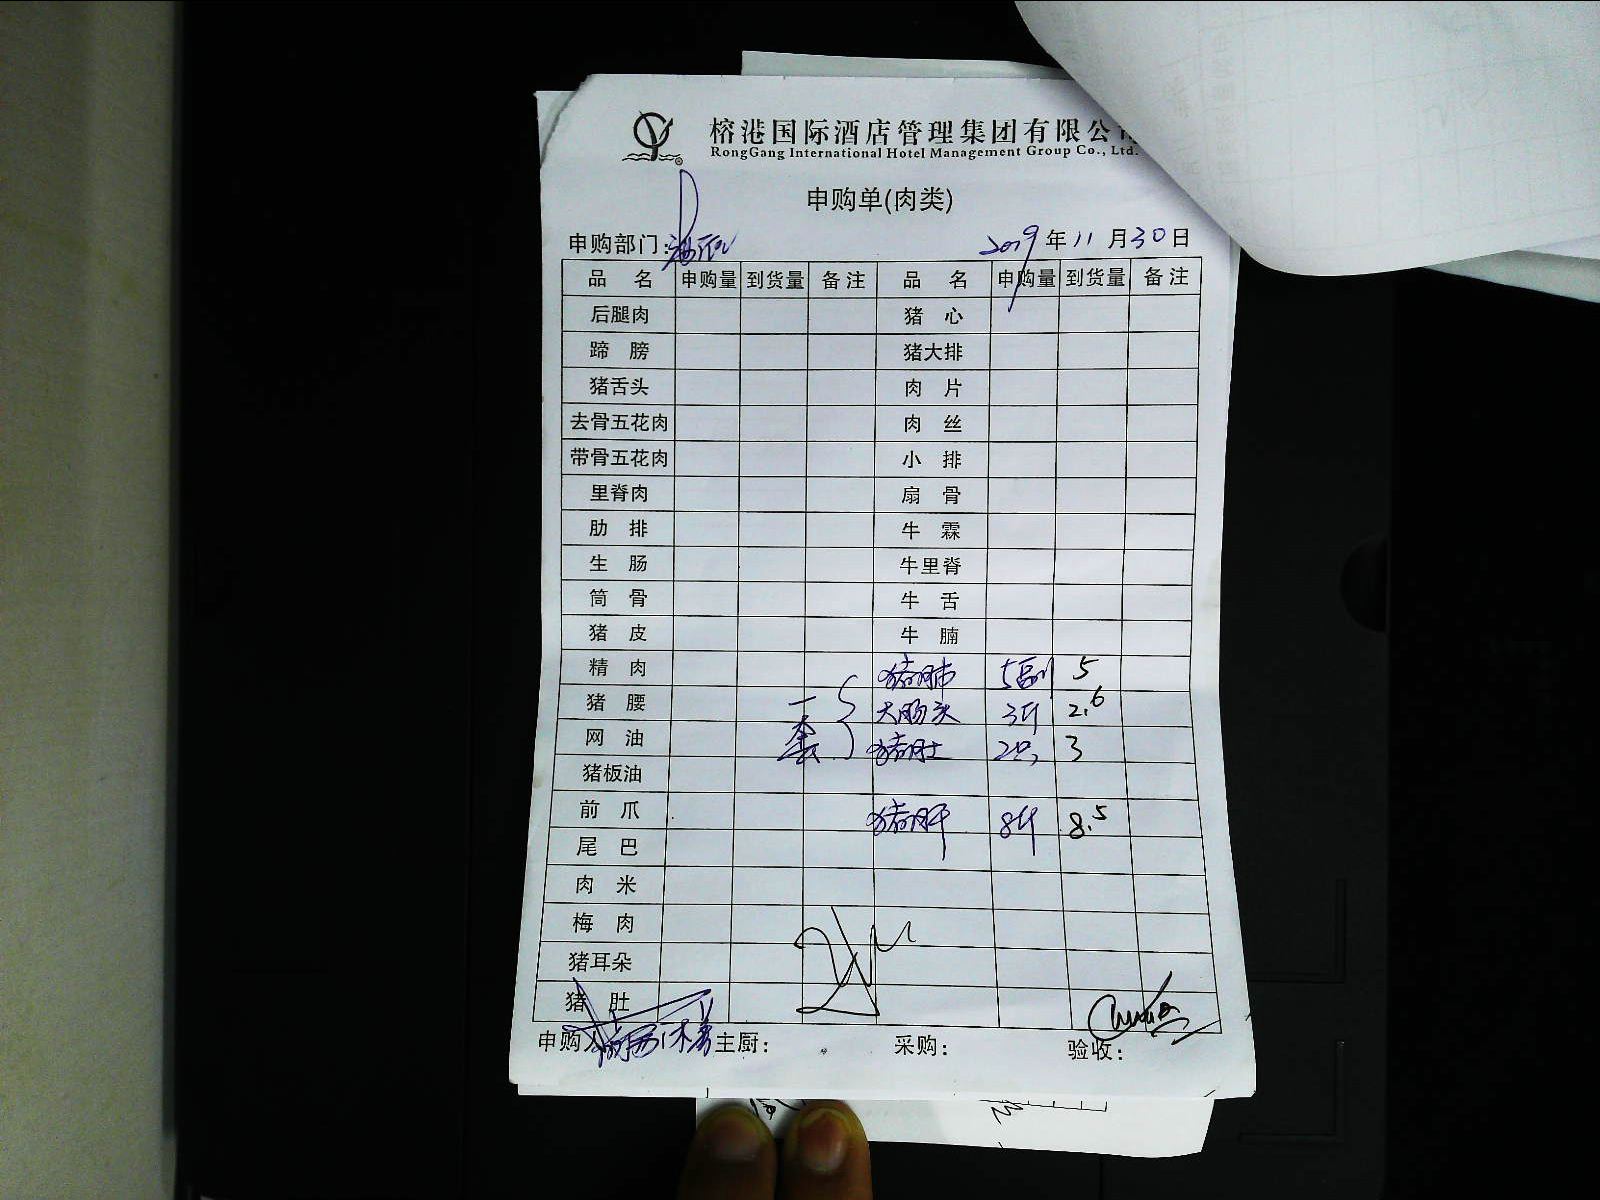 榕港国际酒店管理集团有限公司
RongGang International Hotel Management Group Co., Ltd.
申购单(肉类)
申购部门: 2019年11月30日
品 名 申购量 到货量 备注 品 名 申购量 到货量 备注
后腿肉 猪 心
蹄 膀 猪大排
猪舌头 肉 片
去骨五花肉 肉 丝
带骨五花肉 小 排
里脊肉 扇 骨
肋 排 牛 霖
生 肠 牛里脊
筒 骨 牛 舌
猪 皮 牛 腩
精 肉 猪肺 5副 5
猪 腰 一 大肠头 3斤 2.6
网 油 套 猪肚 2只 3
猪板油
前 爪 猪肝 8斤 8.5
尾 巴
肉 米
梅 肉
猪耳朵
猪 肚
申购人 主厨: 采购: 验收: